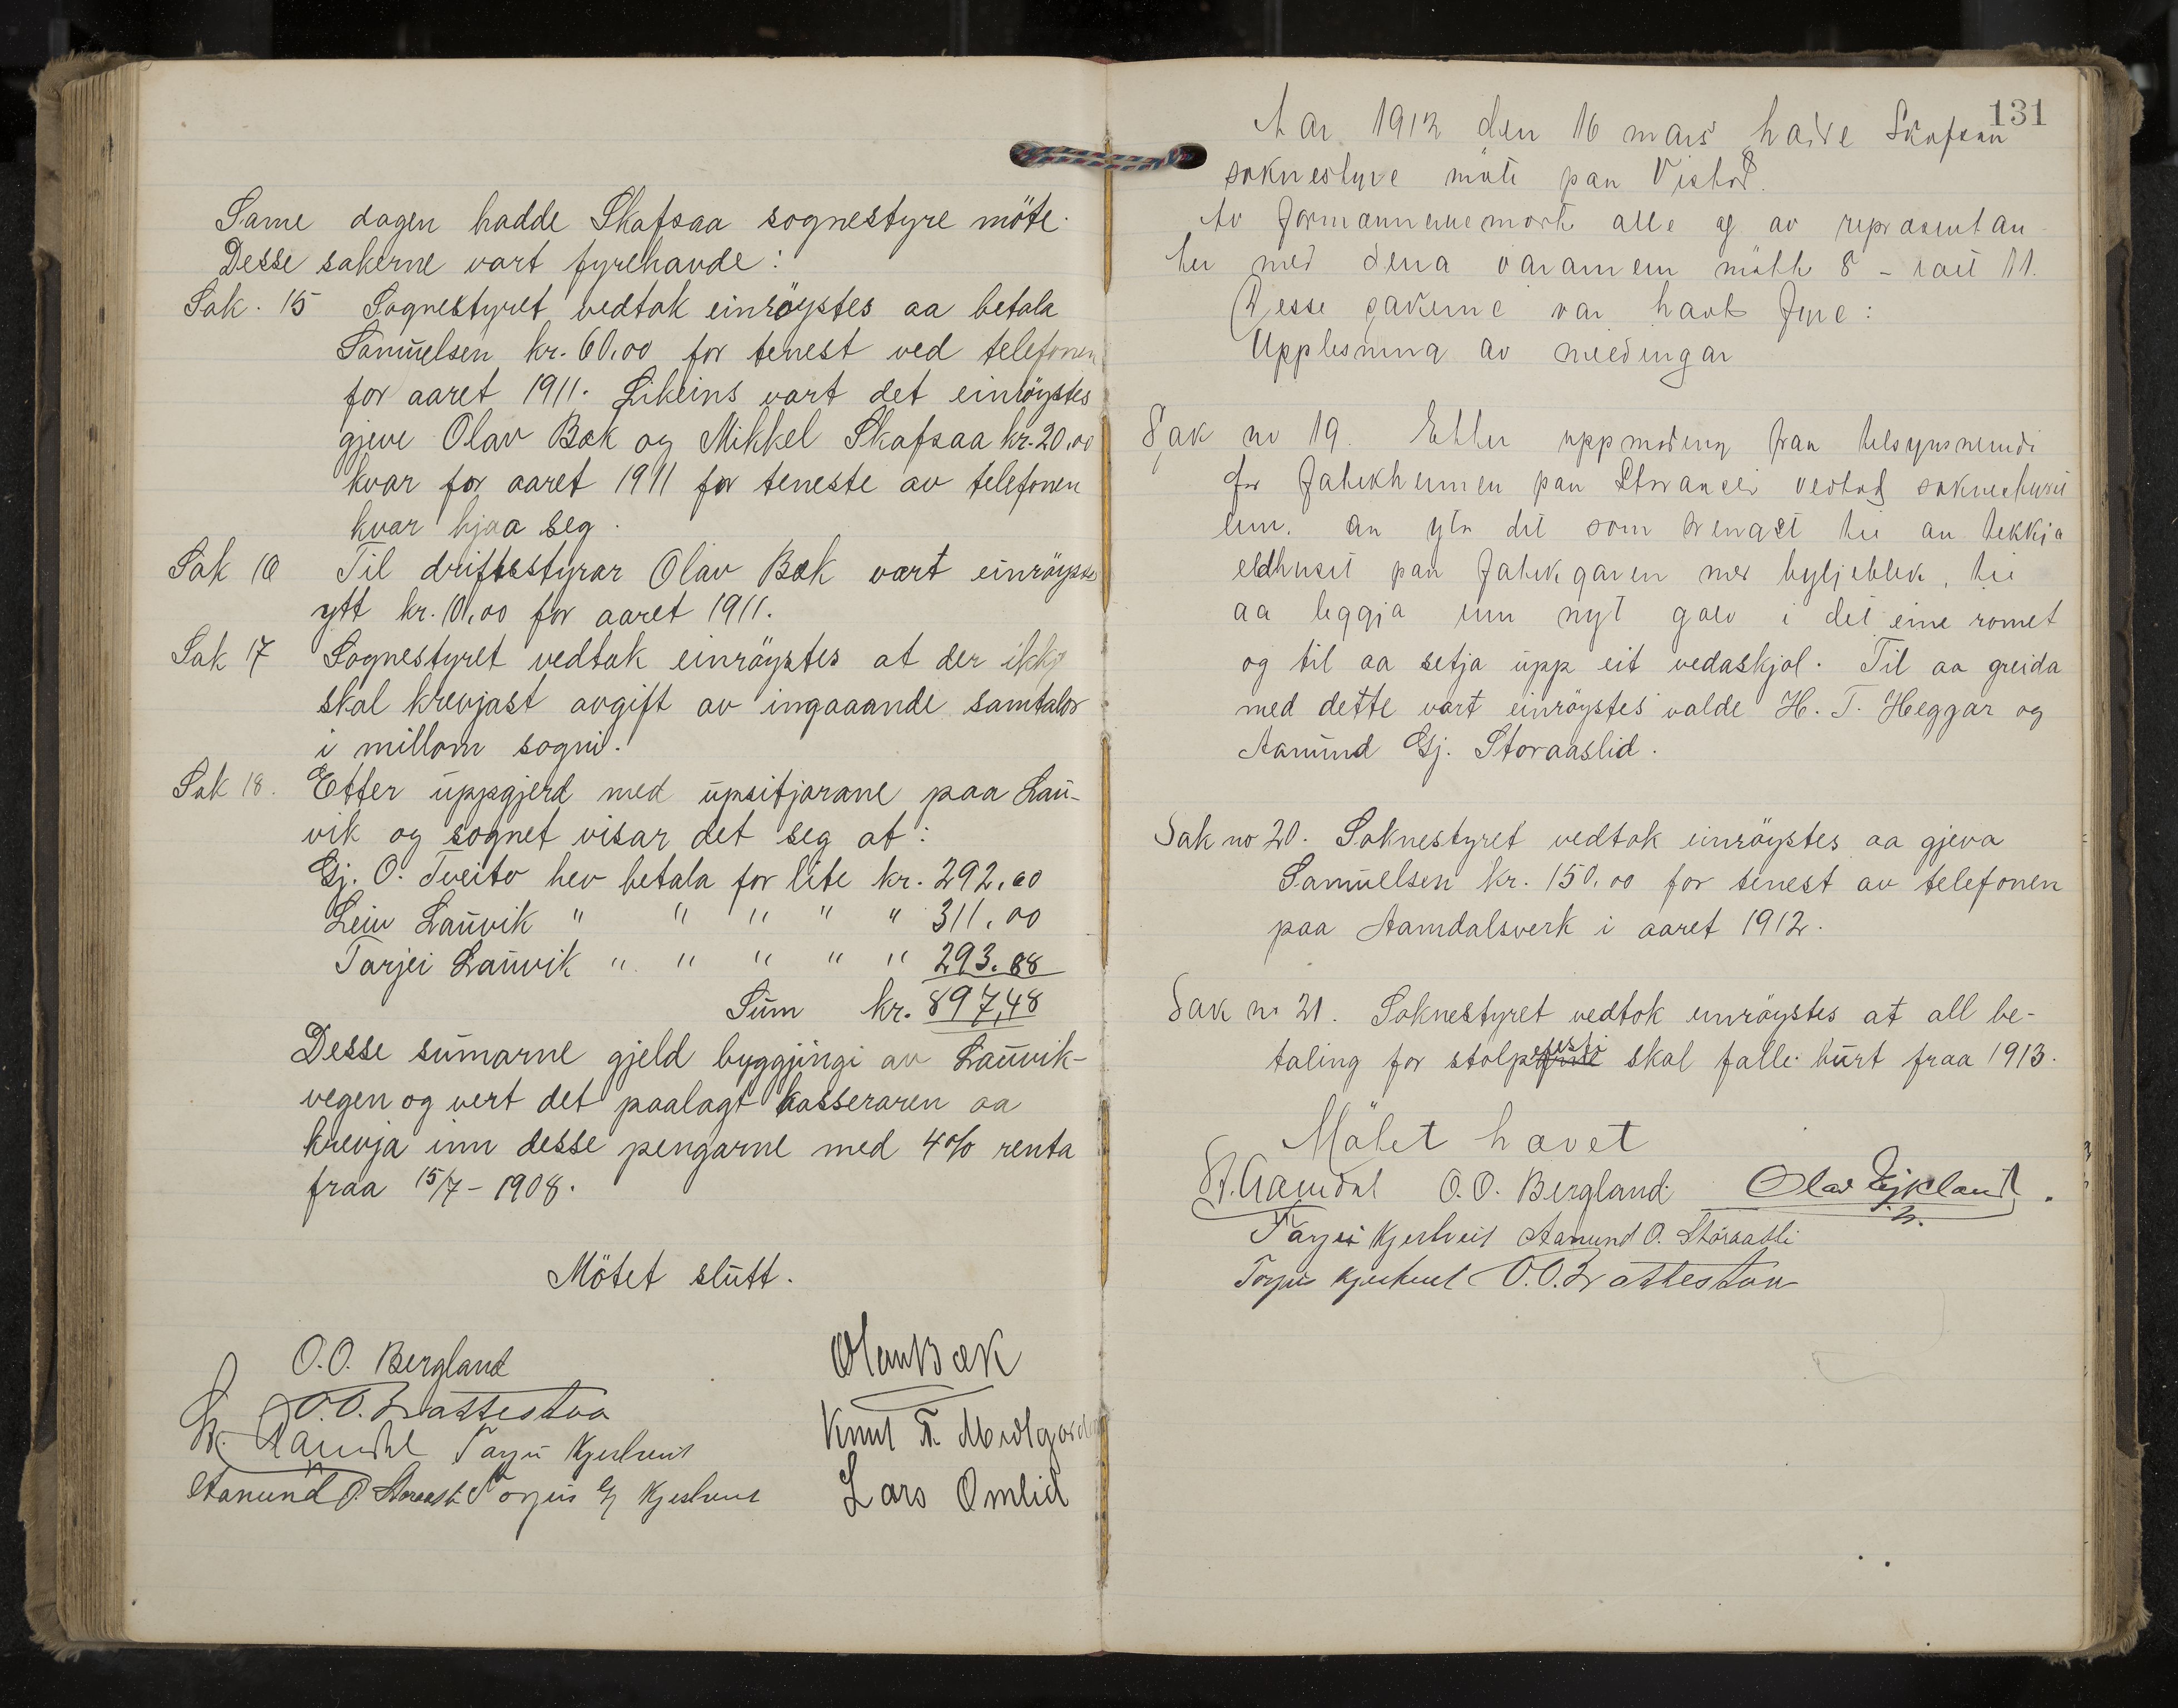 Same dagen hadde Skafsaa sognestyre möte.
Desse sakerne vart fyrehavde:
Sak. 15 Sognestyret vedtok einröystes aa betala
Samuelsen kr. 60,00 for tenest ved telefonen
for aaret 1911. Likeins vart det einröystes
gjeve Olav Bæk og Mikkel Skafsaa kr. 20,00
kvar for aaret 1911 for teneste av telefonen
kvar hjaa seg.
Sak 16 Til driftsstyrar Olav Bæk vart einröystes
ytt kr. 10,00 for aaret 1911.
Sak 17 Sognestyret vedtok einröystes at der ikkje
skal krevjast avgift av ingaaande samtalar
i millom sogni.
Sak 18. Etter uppgjerd med upsitjarane paa Lau-
vik og sognet visar det seg at:
Gj. O. Tveito hev betala for lite kr. 292,60
Leiv Lauvik " " " " " 311,00
Tarjei Lauvik " " " " " 293.88
Sum kr. 897,48
Desse sumarne gjeld byggjingi av Lauvik-
vegen og vert det paalagt kasseraren aa
krevja inn desse pengarne med 4% renta
fraa 15/7 - 1908.
Mötet slutt.
O.O. Bergland
Olav Bæk
O.O. Brattestaa
Knut T. Midtgarden
Aamdal Tarjei Kjerhveit
Lars Omlid
Aanund O. Storaasli Torjus Gj Kjerhveit
131
Aar 1912 den 16 mars hadde Skafsaa
soknestyre möte paa Vistad.
Av formennene mötte alle og av representan-
ter med dera varamenn mötte 8 - ialt 11.
Desse sakerne var havt fyre:
Upplesning av meldingar
Sak no 19. Etter uppmoding fraa tilsynsnemdi
for fatikheimen paa Storaaslid vedtok soknestyret
einr. aa yta det som trengst til aa tekkja
eldhuset paa fatikgarden med bylgjeblek, til
aa leggja inn nyt golv i det eine romet
og til aa setja upp eit vedaskjol. Til aa greida
med dette vart einröystes valde H. T. Heggar og
Aanund Gj. Storaaslid.
Sak no 20. Soknestyret vedtok einröystes aa gjeva
Samuelsen kr. 150,00 for tenest av telefonen
paa Aamdalsverk i aaret 1912.
Sak no 21. Soknestyret vedtok einröystes at all be-
taling for stolpefeste skal falle burt fraa 1913.
Mötet hævet
Aamdal O.O. Bergland Olav Eykland
Tarjei Kjerhveit Aanund O. Storaasli
Torjus Kjerhveit O.O. Brattestaa